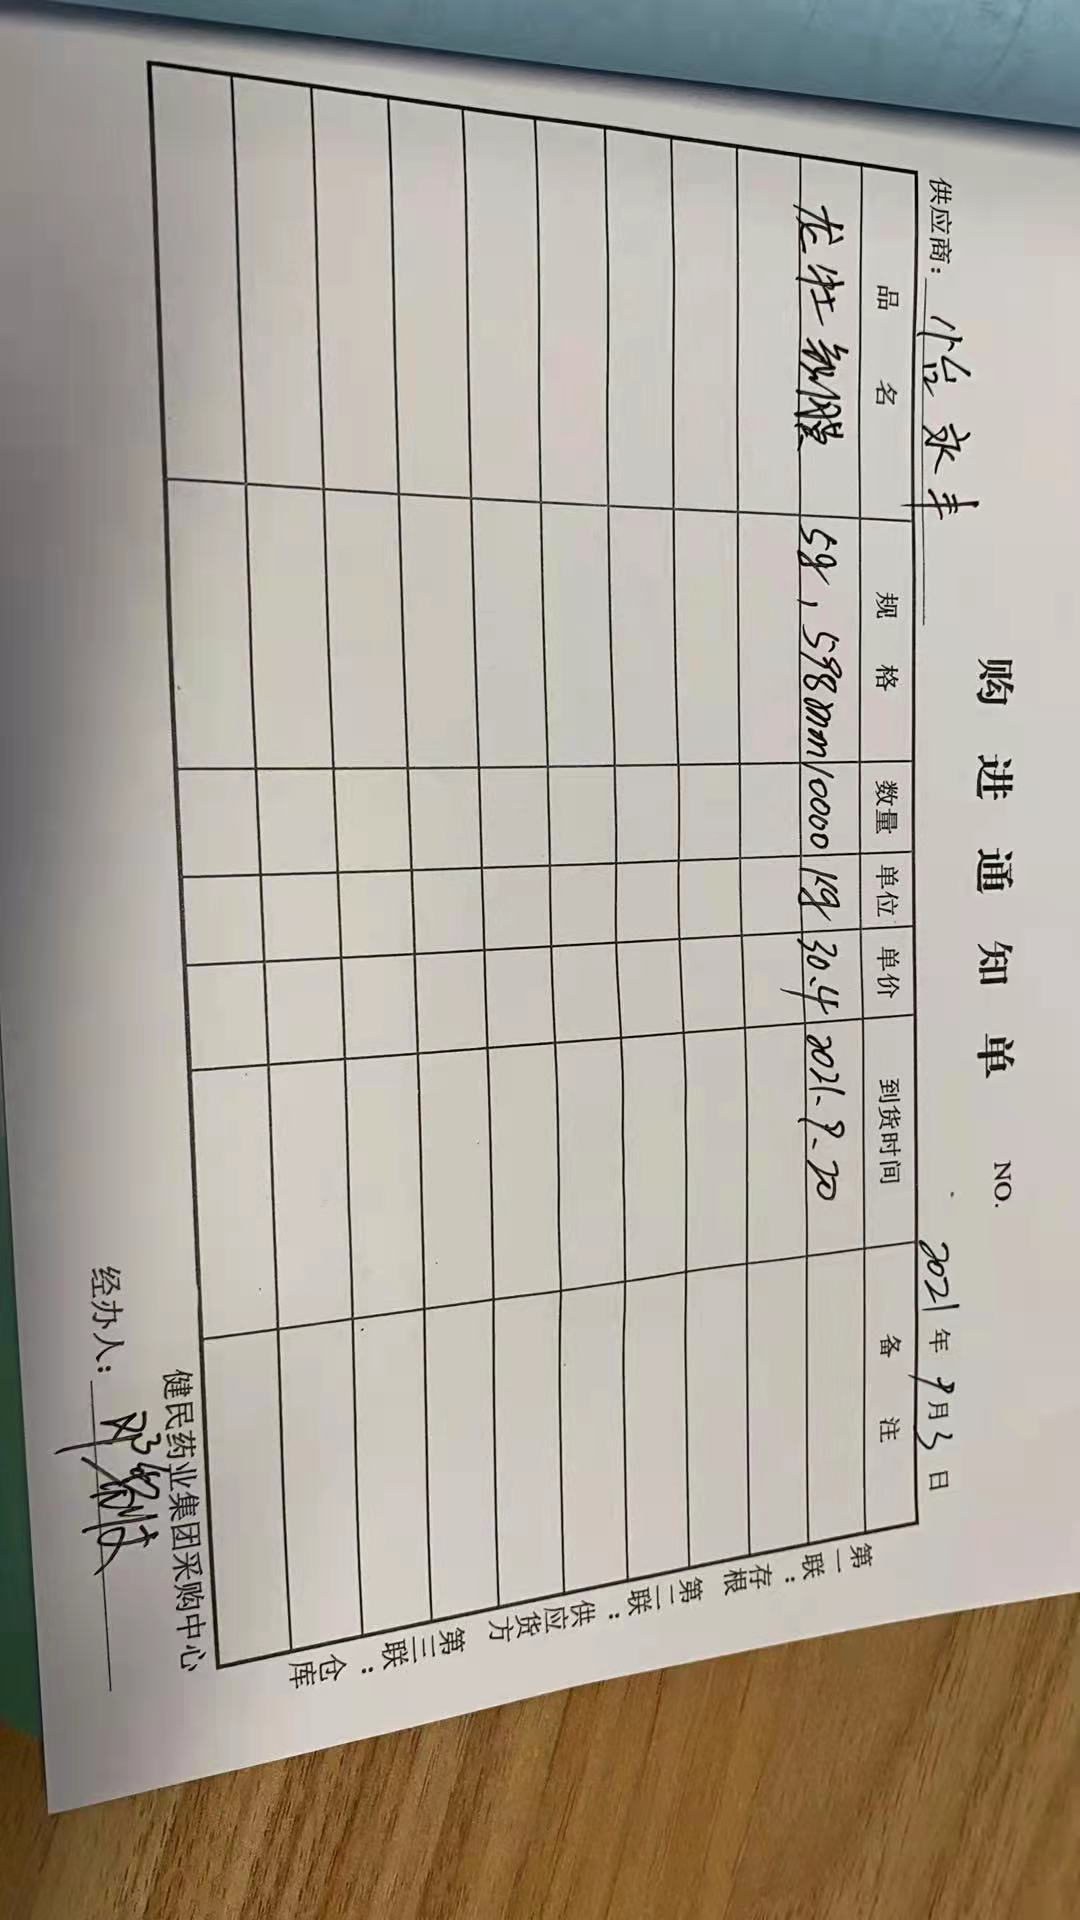 购进通知单 NO.
供应商: 怡永丰 2021年9月3日
品名 规格 数量 单位 单价 到货时间 备注
龙牡 5g，598mm 10000 kg 30.4 2021.9.20
第一联：存根 第二联：供应货方 第三联：仓库
健民药业集团采购中心
经办人：